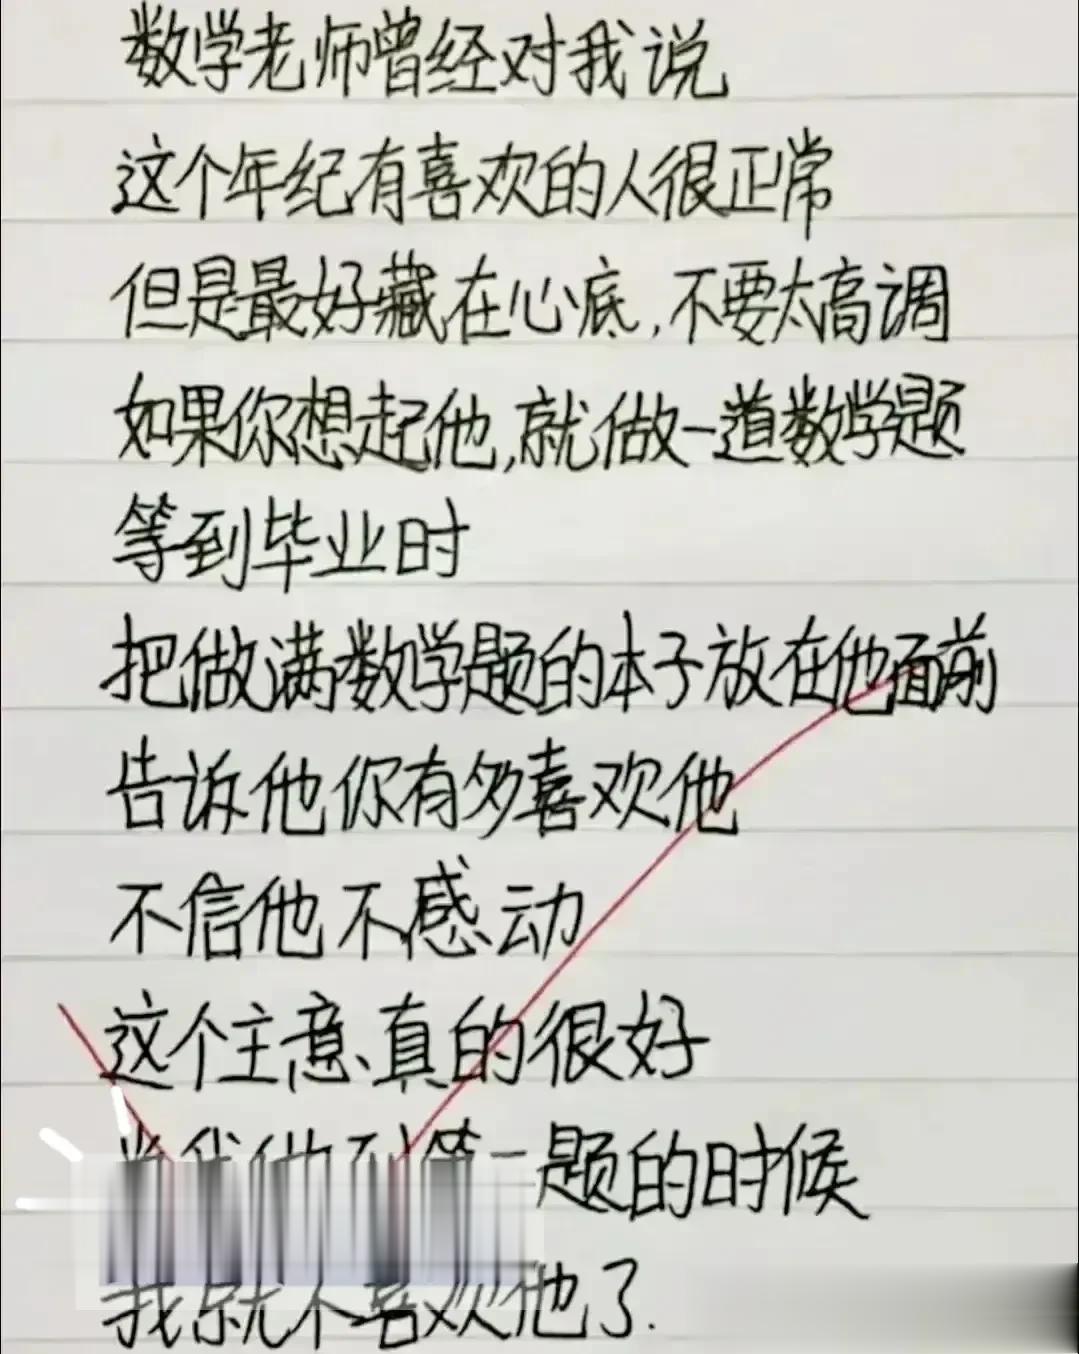 数学老师曾经对我说
这个年纪有喜欢的人很正常
但是最好藏在心底,不要太高调
如果你想起他,就做一道数学题
等到毕业时
把做满数学题的本子放在他面前
告诉他你有多喜欢他
不信他不感动
这个主意真的很好
当我做到第二题的时候
我就不喜欢他了.